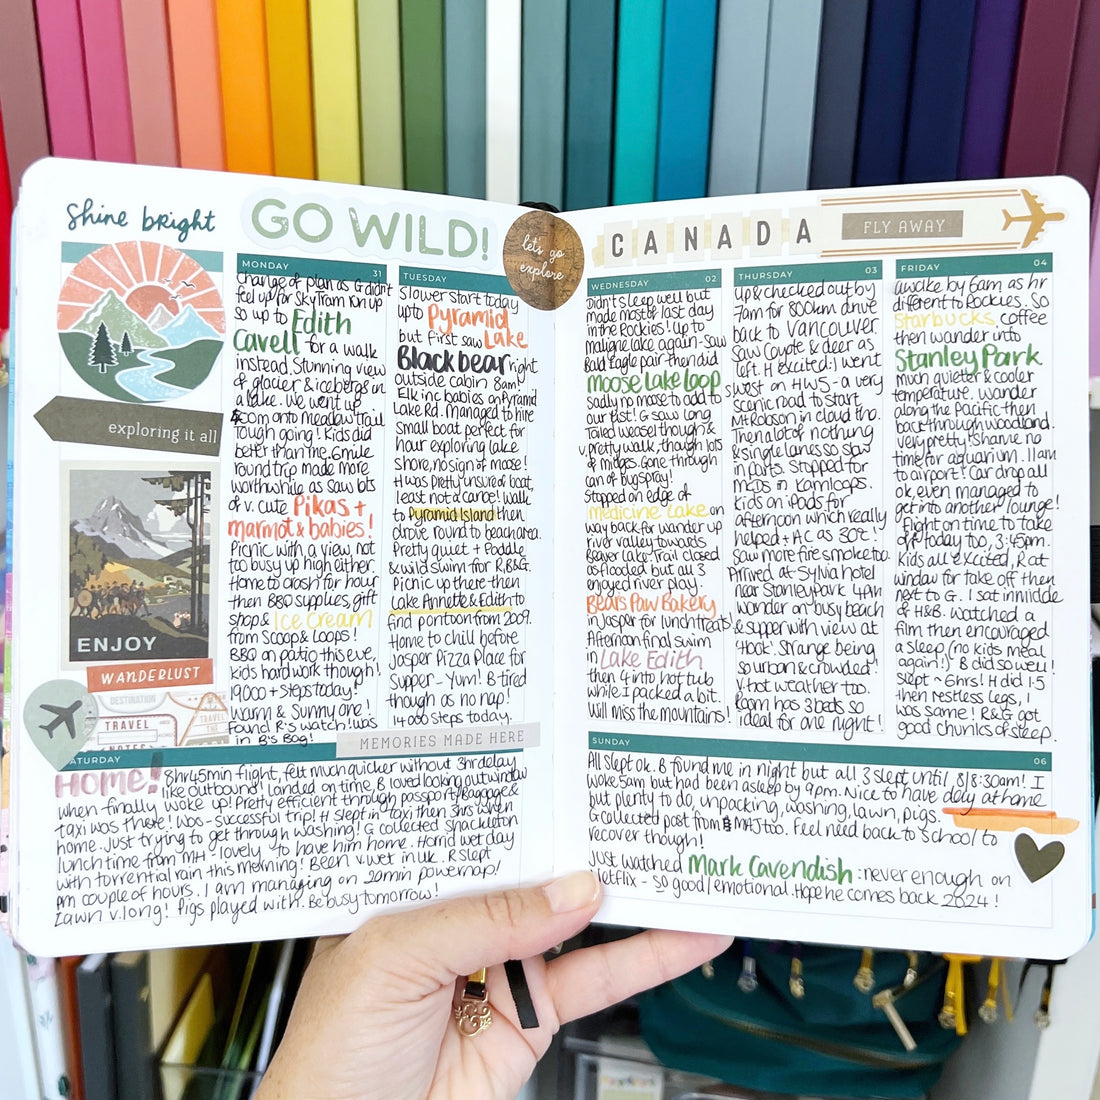 Shine bright
GO WILD!
let's go
explore
CANADA
FLY AWAY
exploring it all
ENJOY
WANDERLUST
DESTINATION
TRAVEL
TRAVEL
NOTES
MONDAY 31
Change of plan as G didn't
feel up for SkyTram run up
so up to Edith
Cavell for a walk
instead. Stunning view
of glacier & icebergs in
a lake. We went up
400m onto meadow trail
Tough going! Kids did
better than me. 6mile
round trip made more
worthwhile as saw lots
of v. cute Pikas +
marmot & babies!
Picnic with a view not
too busy up high either.
Home to crash for hour
then BBQ supplies, gift
shop & Ice Cream
from Scoop & Loops!
BBQ on patio this eve,
kids hard work though!
19000 + steps today!
Warm & Sunny one!
Found R's watch! was
in B's Bag!
TUESDAY
Slower start today
up to Pyramid
but first saw Lake
Black bear right
outside cabin 8am!
Elk inc babies on Pyramid
Lake Rd. Managed to hire
small boat perfect for
hour exploring lake
shore, no sign of moose!
H was pretty unsure of boat,
least not a canoe! Walk
to Pyramid Island then
drove round to beach area.
Pretty quiet + Paddle
& wild swim for R, B & G.
Picnic up there then
Lake Annette & Edith to
find photo from 2009.
Home to chill before
Jasper Pizza Place for
Supper - Yum! B tired
though as no nap!
14000 steps today.
MEMORIES MADE HERE
WEDNESDAY 02
Didn't sleep well but
made most of last day
in the Rockies! Up to
maligne lake again - saw
Bald Eagle pair then did
Moose Lake loop
Sadly no moose to add to
our list! G saw long
Tailed weasel though &
v. pretty walk, though lots
of midges. Gone through
can of bug spray!
Stopped on edge of
Medicine Lake on
way back for wander up
river valley towards
Beaver Lake. Trail closed
as flooded but all 3
enjoyed river play.
Bears Paw Bakery
in Jasper for lunch treats!
Afternoon final swim
in Lake Edith
then 4 into hot tub
while I packed a bit.
Will miss the mountains!
THURSDAY 03
Up & checked out by
7am for 800km drive
back to Vancouver
Saw Coyote & deer as
left. H excited! I went
West on HW5 - a very
scenic road to start
Mt Robson in cloud tho.
Then a lot of nothing
& single lanes so slow
in parts. Stopped for
McDs in Kamloops.
Kids on iPads for
afternoon which really
helped + AC as 30c!
Saw more fire smoke too.
Arrived at Sylvia hotel
near Stanley Park 4pm
Wander on busy beach
& supper with view at
'Hook'. Strange being
so urban & crowded!
V. hot weather too.
Room has 3 beds so
ideal for one night!
FRIDAY 04
Awake by 6am as hr
different to Rockies. So
Starbucks coffee
then wander into
Stanley Park
much quieter & cooler
temperature. Wander
along the Pacific then
back through woodland.
Very pretty! shame no
time for aquarium. 11am
to airport! Car drop all
ok, even managed to
get into another lounge!
Flight on time to take
off today too, 3:45pm.
Kids all excited, R at
window for take off then
next to G. I sat in middle
of H&B. Watched a
film then encouraged
a sleep (no kids meal
again!) B did so well!
slept ~6hrs! H did 1.5
then restless legs, I
was same! R&G got
good chunks of sleep.
SATURDAY
HOME! 8hr45min flight, felt much quicker without 3hr delay
like outbound! Landed on time, B loved looking out window
when finally woke up! Pretty efficient through passport/Baggage &
taxi was there! Was - successful trip! H slept in taxi then 3hrs when
home. Just trying to get through washing! G collected Shackleton
lunchtime from MH - lovely to have him home. Horrid wet day
with torrential rain this morning! Been v. wet in UK. R slept
pm couple of hours. I am managing on 20min powernap!
Lawn v. long! Pigs played with. Be busy tomorrow!
SUNDAY 06
All slept ok. B found me in night but all 3 slept until 8/8:30am! I
woke 5am but had been asleep by 9pm. Nice to have day at home
but plenty to do, unpacking, washing, lawn, pigs.
G collected post from M&J too. Feel need back to school to
recover though!
Just watched Mark Cavendish: never enough on
Netflix - so good / emotional. Hope he comes back 2024!